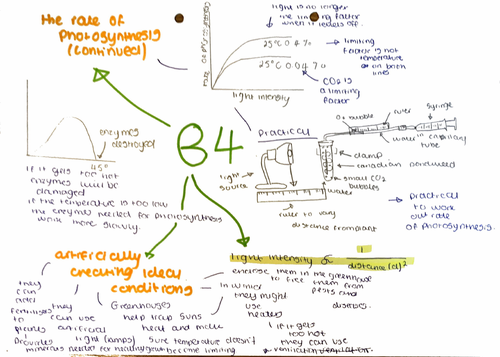 the rate of
photosynthesis
(continued)
light is no longer
the limiting factor
when it levels off.
rate of
25°C 0.4%
25°C 0.4%
light intensity
limiting
factor is not
temperature
on both
lines
CO2 is
a limiting
factor
B4
Practical
O2 bubble
ruler
syringe
water in capillary
tube
clamp
canadian pondweed
small CO2
bubbles
light
source
water
ruler to vary
distance from plant
practical
to work
out rate
of photosynthesis.
enzymes
destroyed
45°
if it gets too hot
enzymes will be
damaged
if the temperature is too low
the enzymes needed for photosynthesis
work more slowly.
artificially
creating ideal
conditions
they
can
add
fertilisers to
plants
provides
minerals needed for healthy growth
they
can use
artificial
light (lamps)
Greenhouses
help trap suns
heat and make
sure temperature doesn't
become limiting
in winter
they might
use
heaters
light intensity α 1
distance (d)²
enclose them in the greenhouse
to free them from
pests and
diseases.
if it gets
too hot
they can use
ventilation